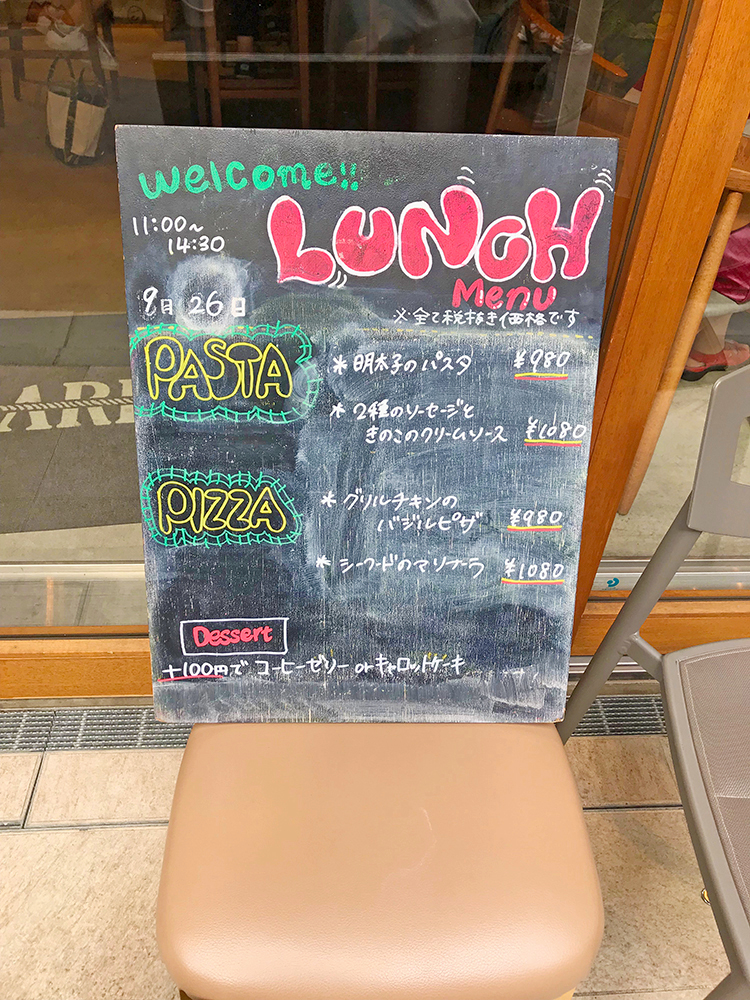 Welcome!!
11:00~
14:30
LUNCH
Menu
9月 26日
※全て税抜き価格です
PASTA
*明太子のパスタ ¥980
*2種のソーセージと
きのこのクリームソース ¥1080
PIZZA
*グリルチキンの
バジルピザ ¥980
*シーフードのマリナーラ ¥1080
Dessert
+100円で コーヒーゼリー orキャロットケーキ